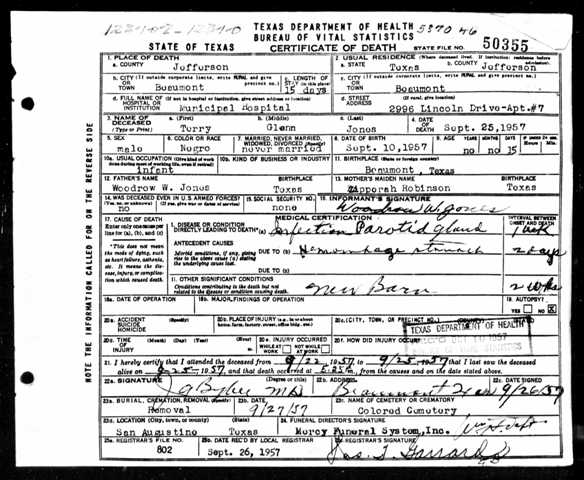 TEXAS DEPARTMENT OF HEALTH
BUREAU OF VITAL STATISTICS
STATE OF TEXAS CERTIFICATE OF DEATH STATE FILE NO. 50355
1. PLACE OF DEATH
a. COUNTY Jefferson
2. USUAL RESIDENCE (Where deceased lived. If institution: residence before admission)
a. STATE Texas b. COUNTY Jefferson
b. CITY (If outside corporate limits, write RURAL and give precinct no.) OR TOWN Beaumont
c. LENGTH OF STAY (in this place) 15 days
c. CITY (If outside corporate limits, write RURAL and give precinct no.) OR TOWN Beaumont
d. FULL NAME OF (If not in hospital or institution, give street address or location) HOSPITAL OR INSTITUTION Municipal Hospital
d. STREET ADDRESS (If rural, give location) 2996 Lincoln Drive-Apt.#7
3. NAME OF DECEASED (Type or Print) a. (First) Terry b. (Middle) Glenn c. (Last) Jones
4. DATE OF DEATH Sept. 25,1957
5. SEX male
6. COLOR OR RACE Negro
7. MARRIED, NEVER MARRIED, WIDOWED, DIVORCED (Specify) never married
8. DATE OF BIRTH Sept.10,1957
9. AGE YEARS no MONTHS no DAYS 15
10a. USUAL OCCUPATION (Give kind of work done during most of working life, even if retired) infant
10b. KIND OF BUSINESS OR INDUSTRY
11. BIRTHPLACE (State or foreign country) Beaumont, Texas
12. FATHER'S NAME Woodrow W. Jones Texas
13. MOTHER'S MAIDEN NAME Zipporah Robinson Texas
14. WAS DECEASED EVER IN U.S. ARMED FORCES? no
15. SOCIAL SECURITY NO. none
16. INFORMANT'S SIGNATURE Woodrow W. Jones
17. CAUSE OF DEATH
Enter only one cause per line for (a), (b), and (c)
MEDICAL CERTIFICATION
INTERVAL BETWEEN ONSET AND DEATH
I. DISEASE OR CONDITION DIRECTLY LEADING TO DEATH (a) Infection Parotid gland 1 wk
*This does not mean the mode of dying, such as heart failure, asthenia, etc. It means the disease, injury, or complication which caused death.
ANTECEDENT CAUSES
Morbid conditions, if any, giving rise to the above cause (a) stating the underlying cause last.
DUE TO (b) Hemorrhage stomach 2 days
DUE TO (c)
II. OTHER SIGNIFICANT CONDITIONS
Conditions contributing to the death but not related to the disease or condition causing death.
New Born 2 wks
18a. DATE OF OPERATION
18b. MAJOR FINDINGS OF OPERATION
19. AUTOPSY? YES NO X
20a. ACCIDENT SUICIDE HOMICIDE (Specify)
20b. PLACE OF INJURY (e.g., in or about home, farm, factory, street, office bldg., etc.)
20c. (CITY, TOWN, OR PRECINCT NO.)
TEXAS DEPARTMENT OF HEALTH
20d. TIME OF INJURY (Month) (Day) (Year) (Hour)
20e. INJURY OCCURRED WHILE AT WORK NOT WHILE AT WORK
20f. HOW DID INJURY OCCUR?
1957
21. I hereby certify that I attended the deceased from 1957 to 9/25 1957 that I last saw the deceased
alive on 1957, and that death occurred at from the causes and on the date stated above.
22a. SIGNATURE (Degree or title) MD
22b. ADDRESS Beaumont
22c. DATE SIGNED 9/26/57
23a. BURIAL, CREMATION, REMOVAL (Specify) Removal
23b. DATE 9/27/57
23c. NAME OF CEMETERY OR CREMATORY Colored Cemetery
23d. LOCATION (City, town, or county) (State) San Augustine Texas
24. FUNERAL DIRECTOR'S SIGNATURE Mercy Funeral System, Inc.
25a. REGISTRAR'S FILE NO. 802
25b. DATE REC'D BY LOCAL REGISTRAR Sept. 26, 1957
25c. REGISTRAR'S SIGNATURE
NOTE THE INFORMATION CALLED FOR ON THE REVERSE SIDE